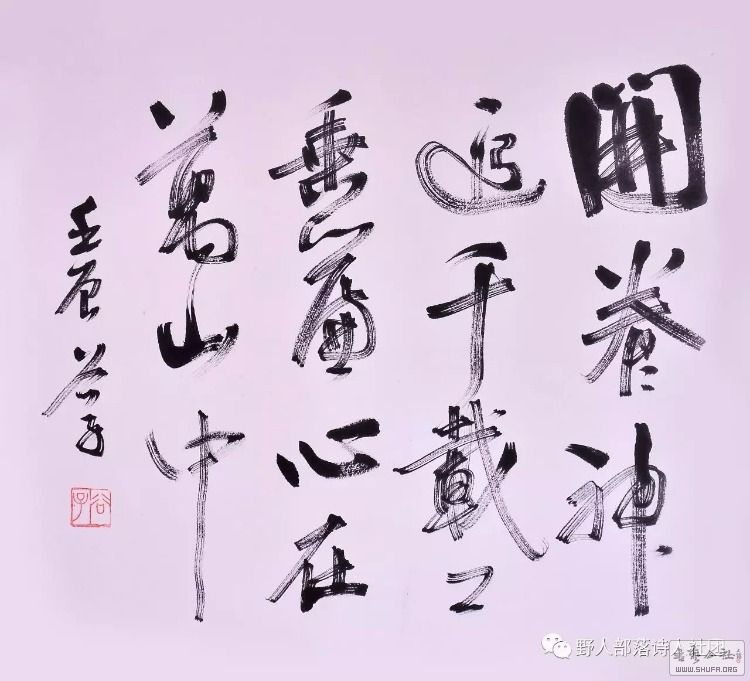 開卷神
遊千載上
垂簾心在
萬山中
壬辰谷子
谷子
野人部落诗人社团
WWW.SHUFA.ORG